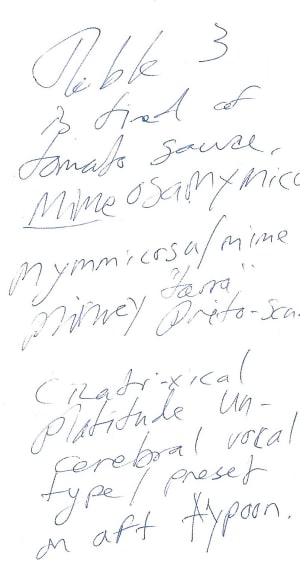 Table 3
is tired of
tomato sauce.
Mimeosamymico
mymmicosa/mime
mimey "farra"
Proto-sca
Cicatri-xical
platitude un-
cerebral vocal
type/preset
on aft typoon.